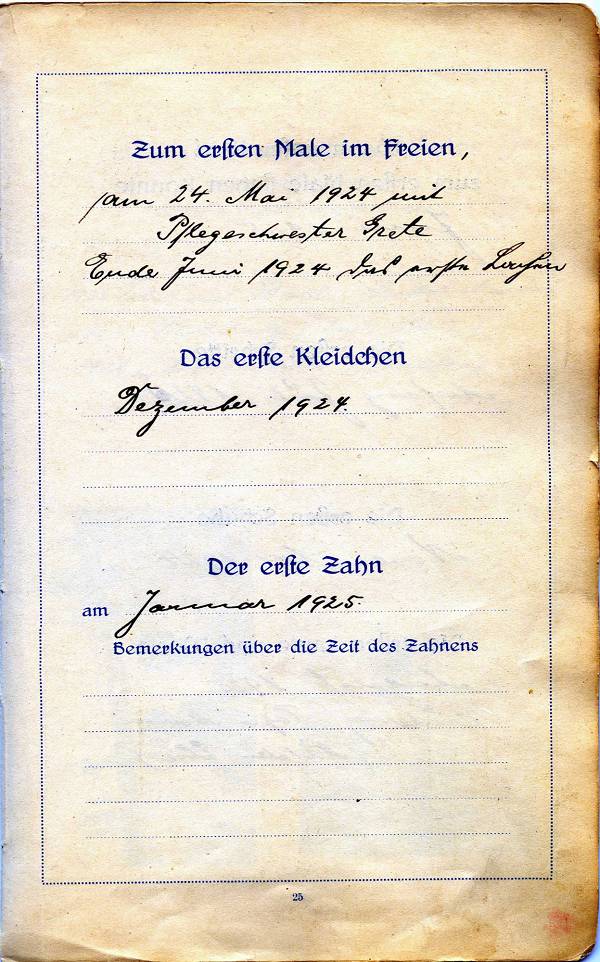 Zum ersten Male im Freien,
am 24. Mai 1924 mit
Pflegeschwester Grete
Ende Juni 1924 das erste Lachen
Das erste Kleidchen
Dezember 1924.
Der erste Zahn
am Januar 1925.
Bemerkungen über die Zeit des Zahnens
25